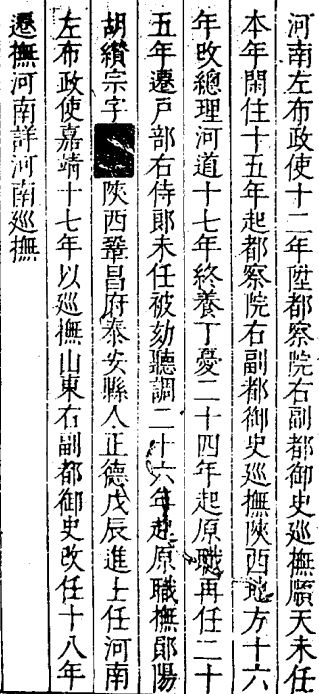 河南左布政使十二年陞都察院右副都御史巡撫順天未任
本年閑住十五年起都察院右副都御史巡撫陝西地方十六
年改總理河道十七年終養丁憂二十四年起原職再任二十
五年遷戶部右侍郎未任被劾聽調二十六年起原職撫鄖陽
胡纘宗字陝西鞏昌府泰安縣人正德戊辰進士任河南
左布政使嘉靖十七年以巡撫山東右副都御史改任十八年
遷撫河南詳河南巡撫